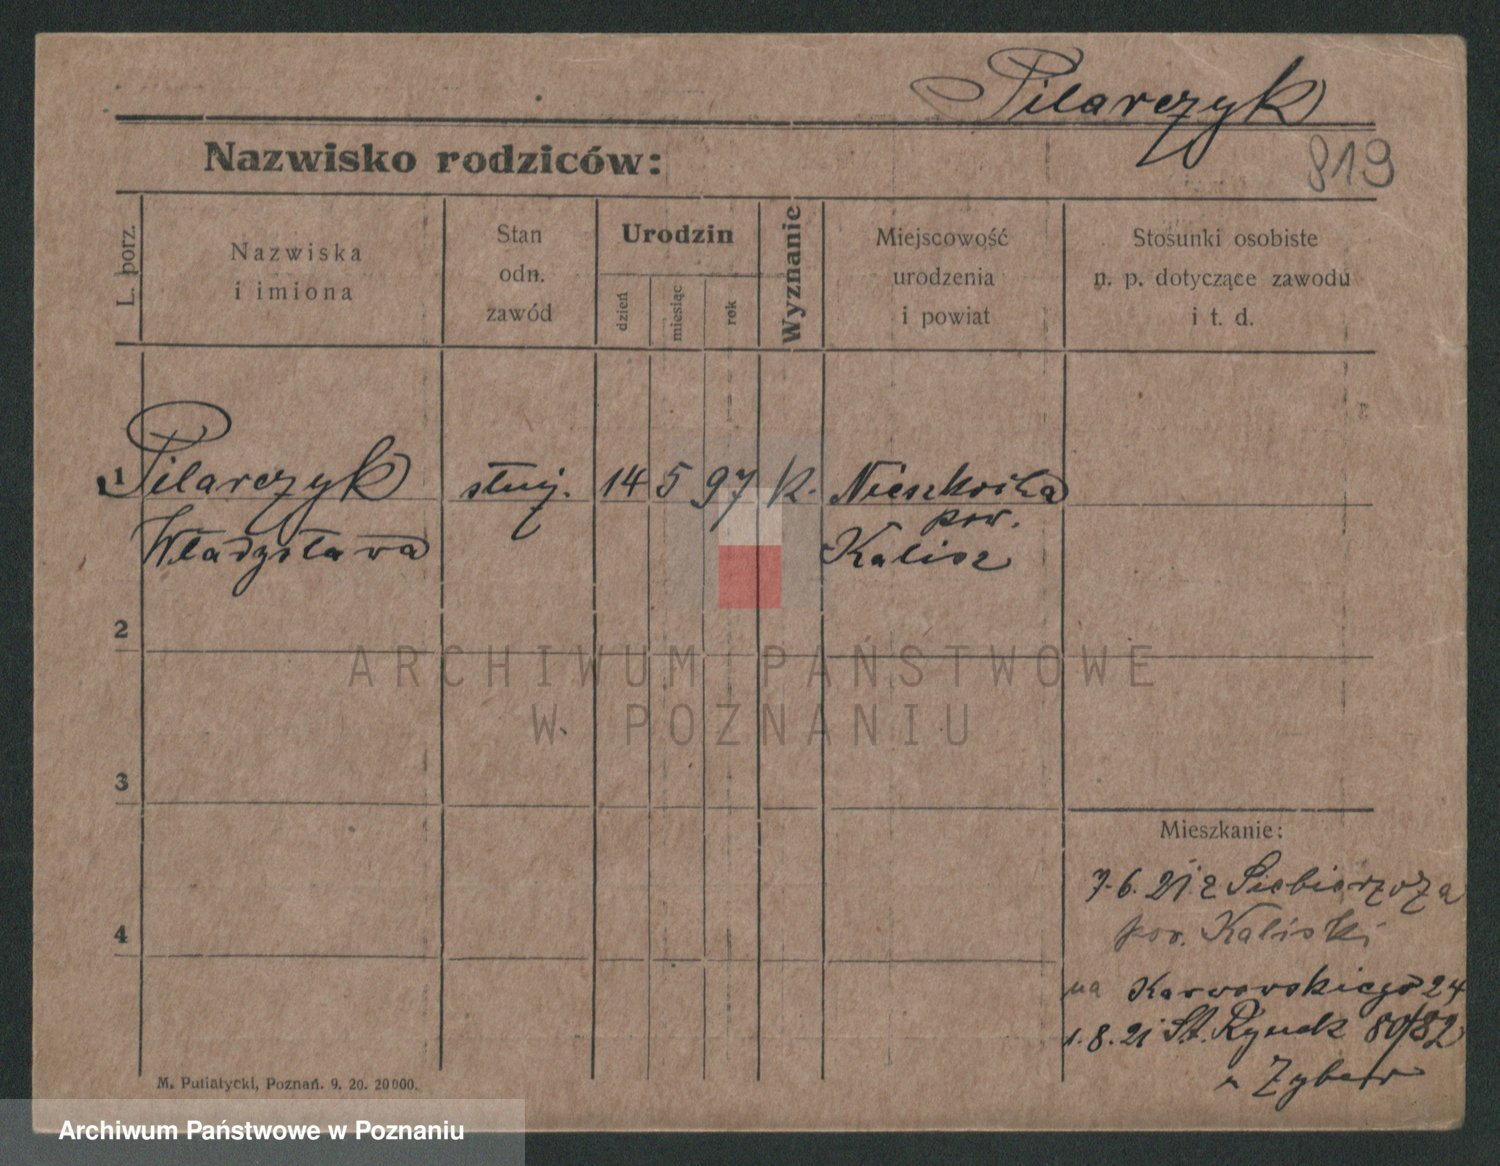 Pilarczyk
819
Nazwisko rodziców:
L. porz.
Nazwiska
i imiona
Stan
odn.
zawód
Urodzin
dzień
miesiąc
rok
Wyznanie
Miejscowość
urodzenia
i powiat
Stosunki osobiste
n. p. dotyczące zawodu
i t. d.
1 Pilarczyk służ. 14 5 97 K.
pow.
Władysława Kalisz
2
3
4
Mieszkanie:
7.6.21 z
pow. Kaliski
na Karwowskiego 24
1.8.21 St. Rynek 80/82
M. Putiatycki, Poznań. 9. 20. 20000.
ARCHIWUM PAŃSTWOWE
W POZNANIU
Archiwum Państwowe w Poznaniu